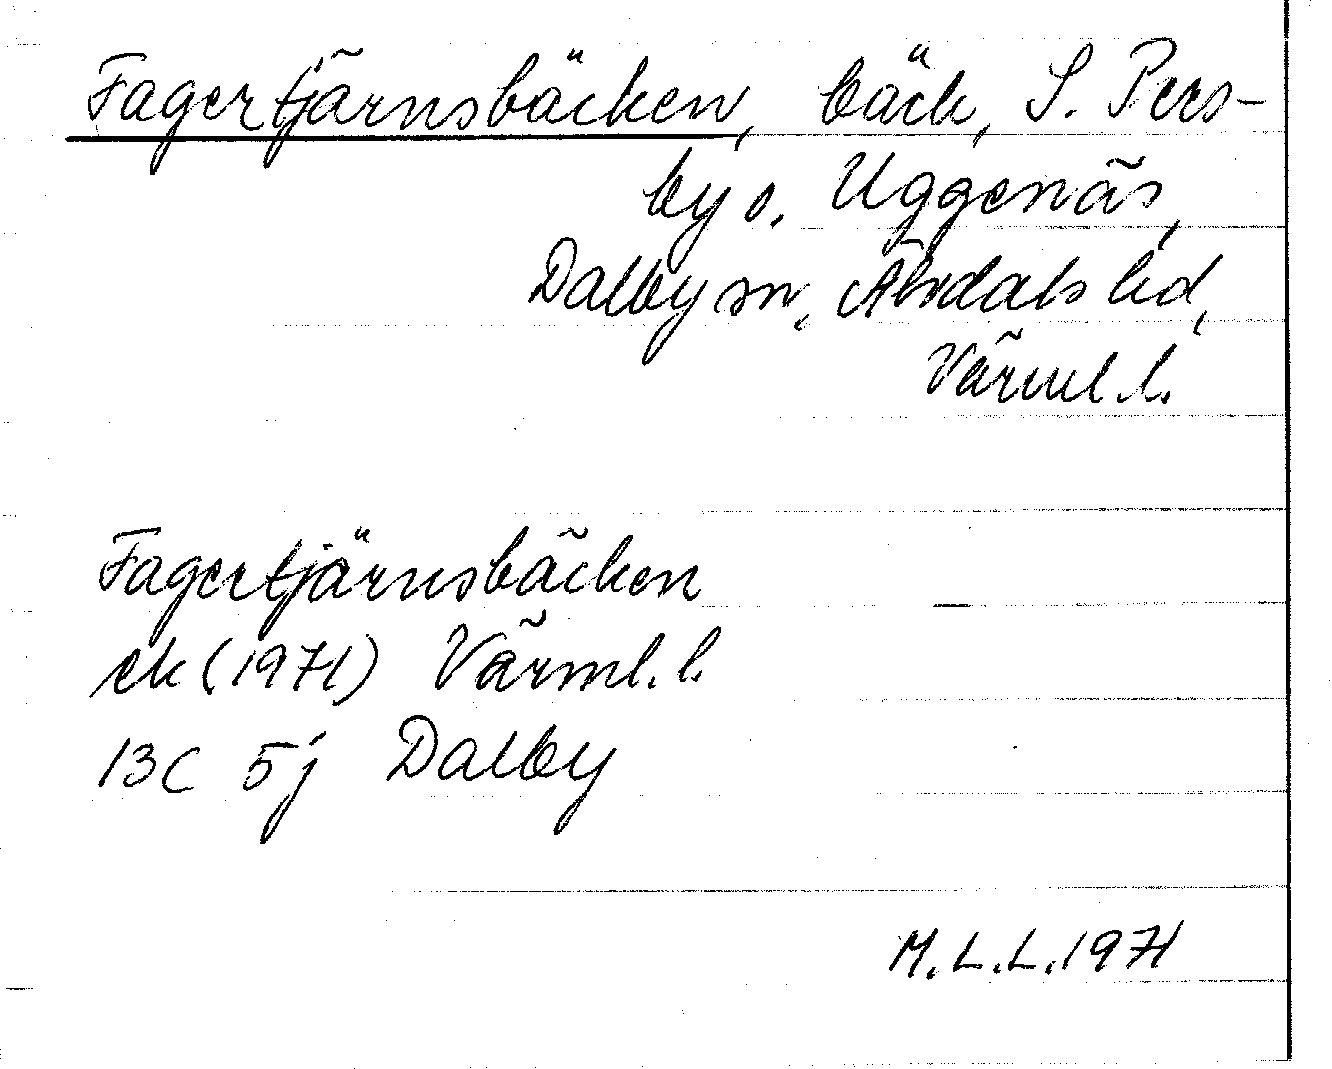 Fagertjärnsbäcken, bäck, S. Pers-
by o. Uggenäs,
Dalby sn, Älvdals hd,
Värml. l.
Fagertjärnsbäcken
ek (1971) Värml. l.
13C 5j Dalby
M.L.L. 1971